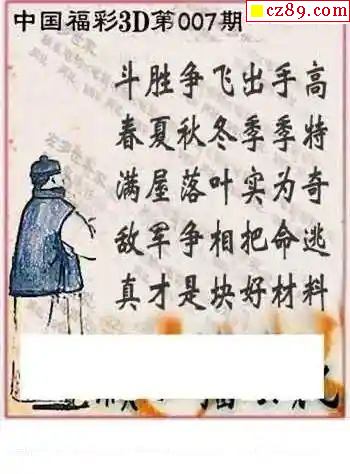 cz89.com
中国福彩3D第007期
斗胜争飞出手高
春夏秋冬季季特
满屋落叶实为奇
敌军争相把命逃
真才是块好材料